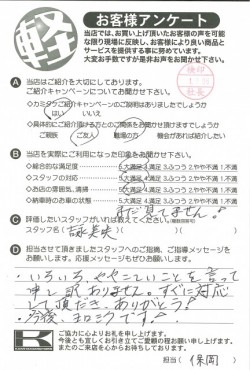 軽
お客様アンケート
当店では、お買い上げ頂いたお客様の声を可能
な限り現場に反映し、お客様により良い商品と
サービスを提供する事に努めています。
大変お手数ですが是非お声をお聞かせ下さい。
検印
社長
A 当店はご紹介を大切にしております。
ご紹介キャンペーンについてお聞かせ下さい
はい いいえ
ご親戚 ご友人 職場の方 機会があれば紹介したい
B 当店を実際にご利用になった印象をお聞かせ下さい。
◇総合的な満足度 5.大満足 4.満足 3.ふつう 2.やや不満 1.不満
◇スタッフの対応 5.大満足 4.満足 3.ふつう 2.やや不満 1.不満
◇お店の雰囲気、清掃 5.大満足 4.満足 3.ふつう 2.やや不満 1.不満
◇納車時のお車の状態 5.大満足 4.満足 3.ふつう 2.やや不満 1.不満
まだ見てません!
C 評価したいスタッフがいれば教えてください
スタッフ名(
D 担当させて頂きましたスタッフへのご指摘、ご指導メッセージを
お願いします。応援メッセージもぜひお願いします。
・いろいろ、ややこしいことを言って
申し訳ありません。すぐに対応
して頂だき、ありがとう!
・今後、ヨロシクです!
K
ご協力に心よりお礼を申し上げます。
今後とも宜しくお引き立てご愛顧の程お願い申し上げます。
またのご来店を心からお待ちしております。
担当( 保岡 )